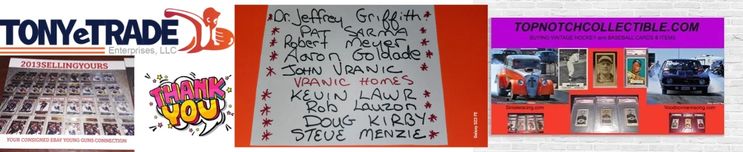 TONYeTRADE
Enterprises, LLC
2013SELLINGYOURS
YOUR CONSIGNED EBAY YOUNG GUNS CONNECTION
THANK
YOU
*Dr. Jeffrey Griffith*
PAT SARMA
*Robert Meyer*
*Aaron Goldade*
*JOHN VRANIC*
VRANIC HOMES
*KEVIN LAWR*
*Rob Lauzon*
*DOUG KIRBY*
*STEVE MENZIE*
TOPNOTCHCOLLECTIBLE.COM
BUYING VINTAGE HOCKEY and BASEBALL CARDS & ITEMS